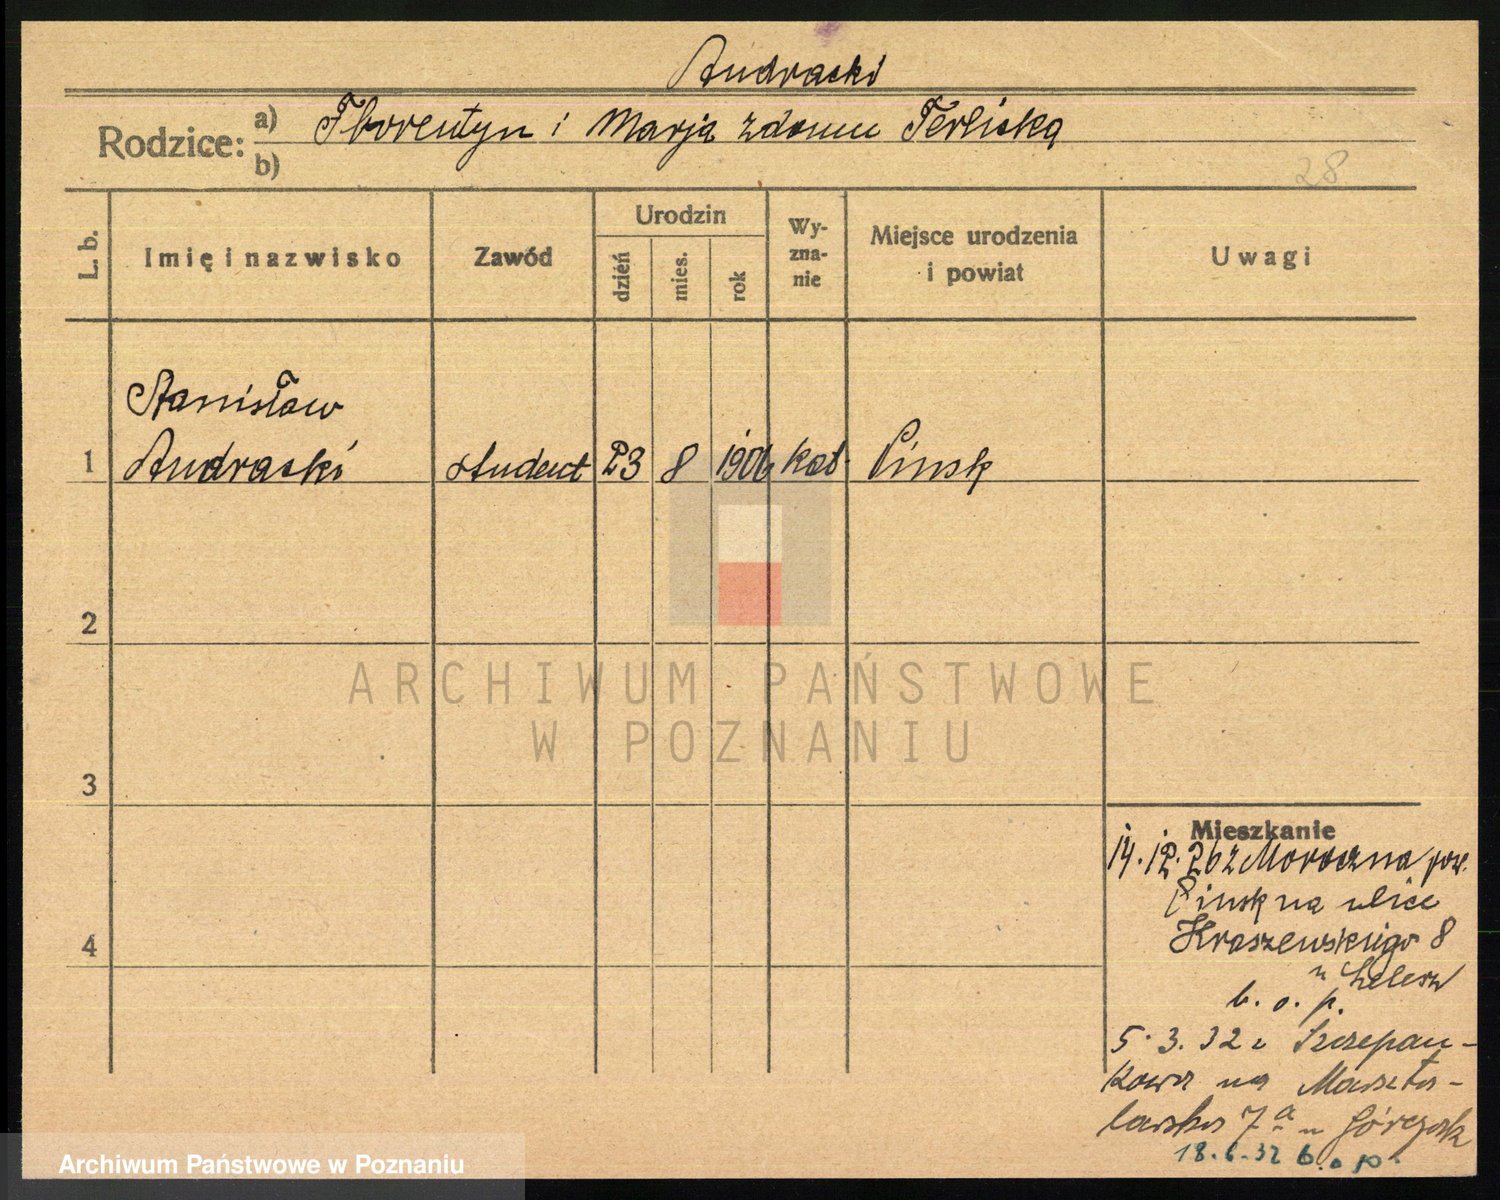 Andracki
Rodzice: a) Florentyn i Marja z domu Terlicką
b)
28
L. b.
Imię i nazwisko
Zawód
Urodzin
dzień
mies.
rok
Wy-
zna-
nie
Miejsce urodzenia
i powiat
Uwagi
Stanisław
1 Andracki student 23 8 1906 kat. Pinsk
2
ARCHIWUM PAŃSTWOWE
W POZNANIU
3
4
Mieszkanie
14.12.26 z Moroczna pow.
Pinsk na ulice
Kraszewskiego 8
u
b. o. p.
5.3.32 z Szczepan-
kowa na Maszta-
larska 7a u Górczak
18.6.32 b. o p.
Archiwum Państwowe w Poznaniu